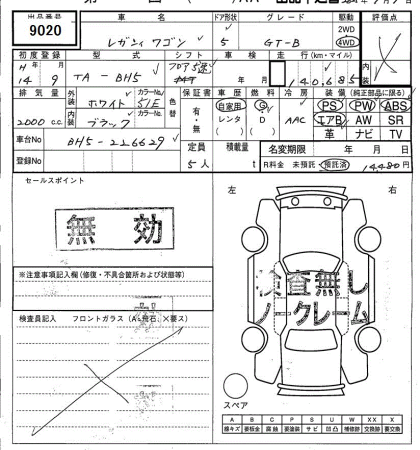 出品番号 車名 ドア形状 グレード 駆動 評価点
9020 レガシィワゴン 5 GT-B 2WD 4WD
初度登録 型式 シフト 車検 走行(km・マイル) 内装
H 年 月 フロア5速 年 月
14 9 TA-BH5 140,685
排気量 外装 カラーNo. 色替 保証書 車歴 燃料 冷房 装備(純正部品に限る)
ホワイト 51E 有・無 自家用 G AAC PS PW ABS
2000 c.c. 内装 ブラック カラーNo. レンタ D エアB AW SR
( ) 革 ナビ TV
車台No BH5-226629 定員 積載量 名変期限 年 月 日
登録No 5人 t R料金 未預託 預託済 14480円
セールスポイント 左 右
無効
※注意事項記入欄(修復・不具合箇所および状態等)
検査無し
ノークレーム
検査員記入 フロントガラス(A:飛石、×要ス)
スペア
A B C P S U W X XX X
線キズ 要板金 腐蝕 要塗装 サビ 凹凸 補修跡 交換跡 要交換